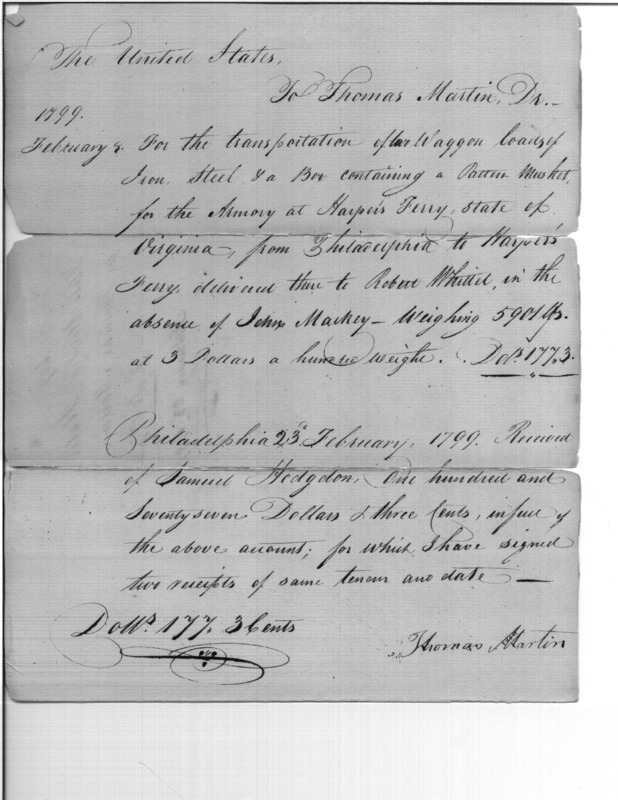 The United States,
To Thomas Martin, Dr.
1799.
February 8. For the transportation of two Waggon loads of
Iron, Steel, & a Box containing a Pattern Musket,
for the Armory at Harper's Ferry, State of
Virginia, from Philadelphia to Harper's
Ferry, delivered there to Robert Whittet, in the
absence of John Mackey – Weighing 5901 lbs.
at 3 Dollars a hundred weight. . Dolls 177.3.
Philadelphia 23d February, 1799. Received
of Samuel Hodgdon, One hundred and
Seventy seven Dollars & three Cents, in full of
the above account; for which I have signed
two receipts of same tenour and date —
Dolls. 177. 3 Cents
Thomas Martin